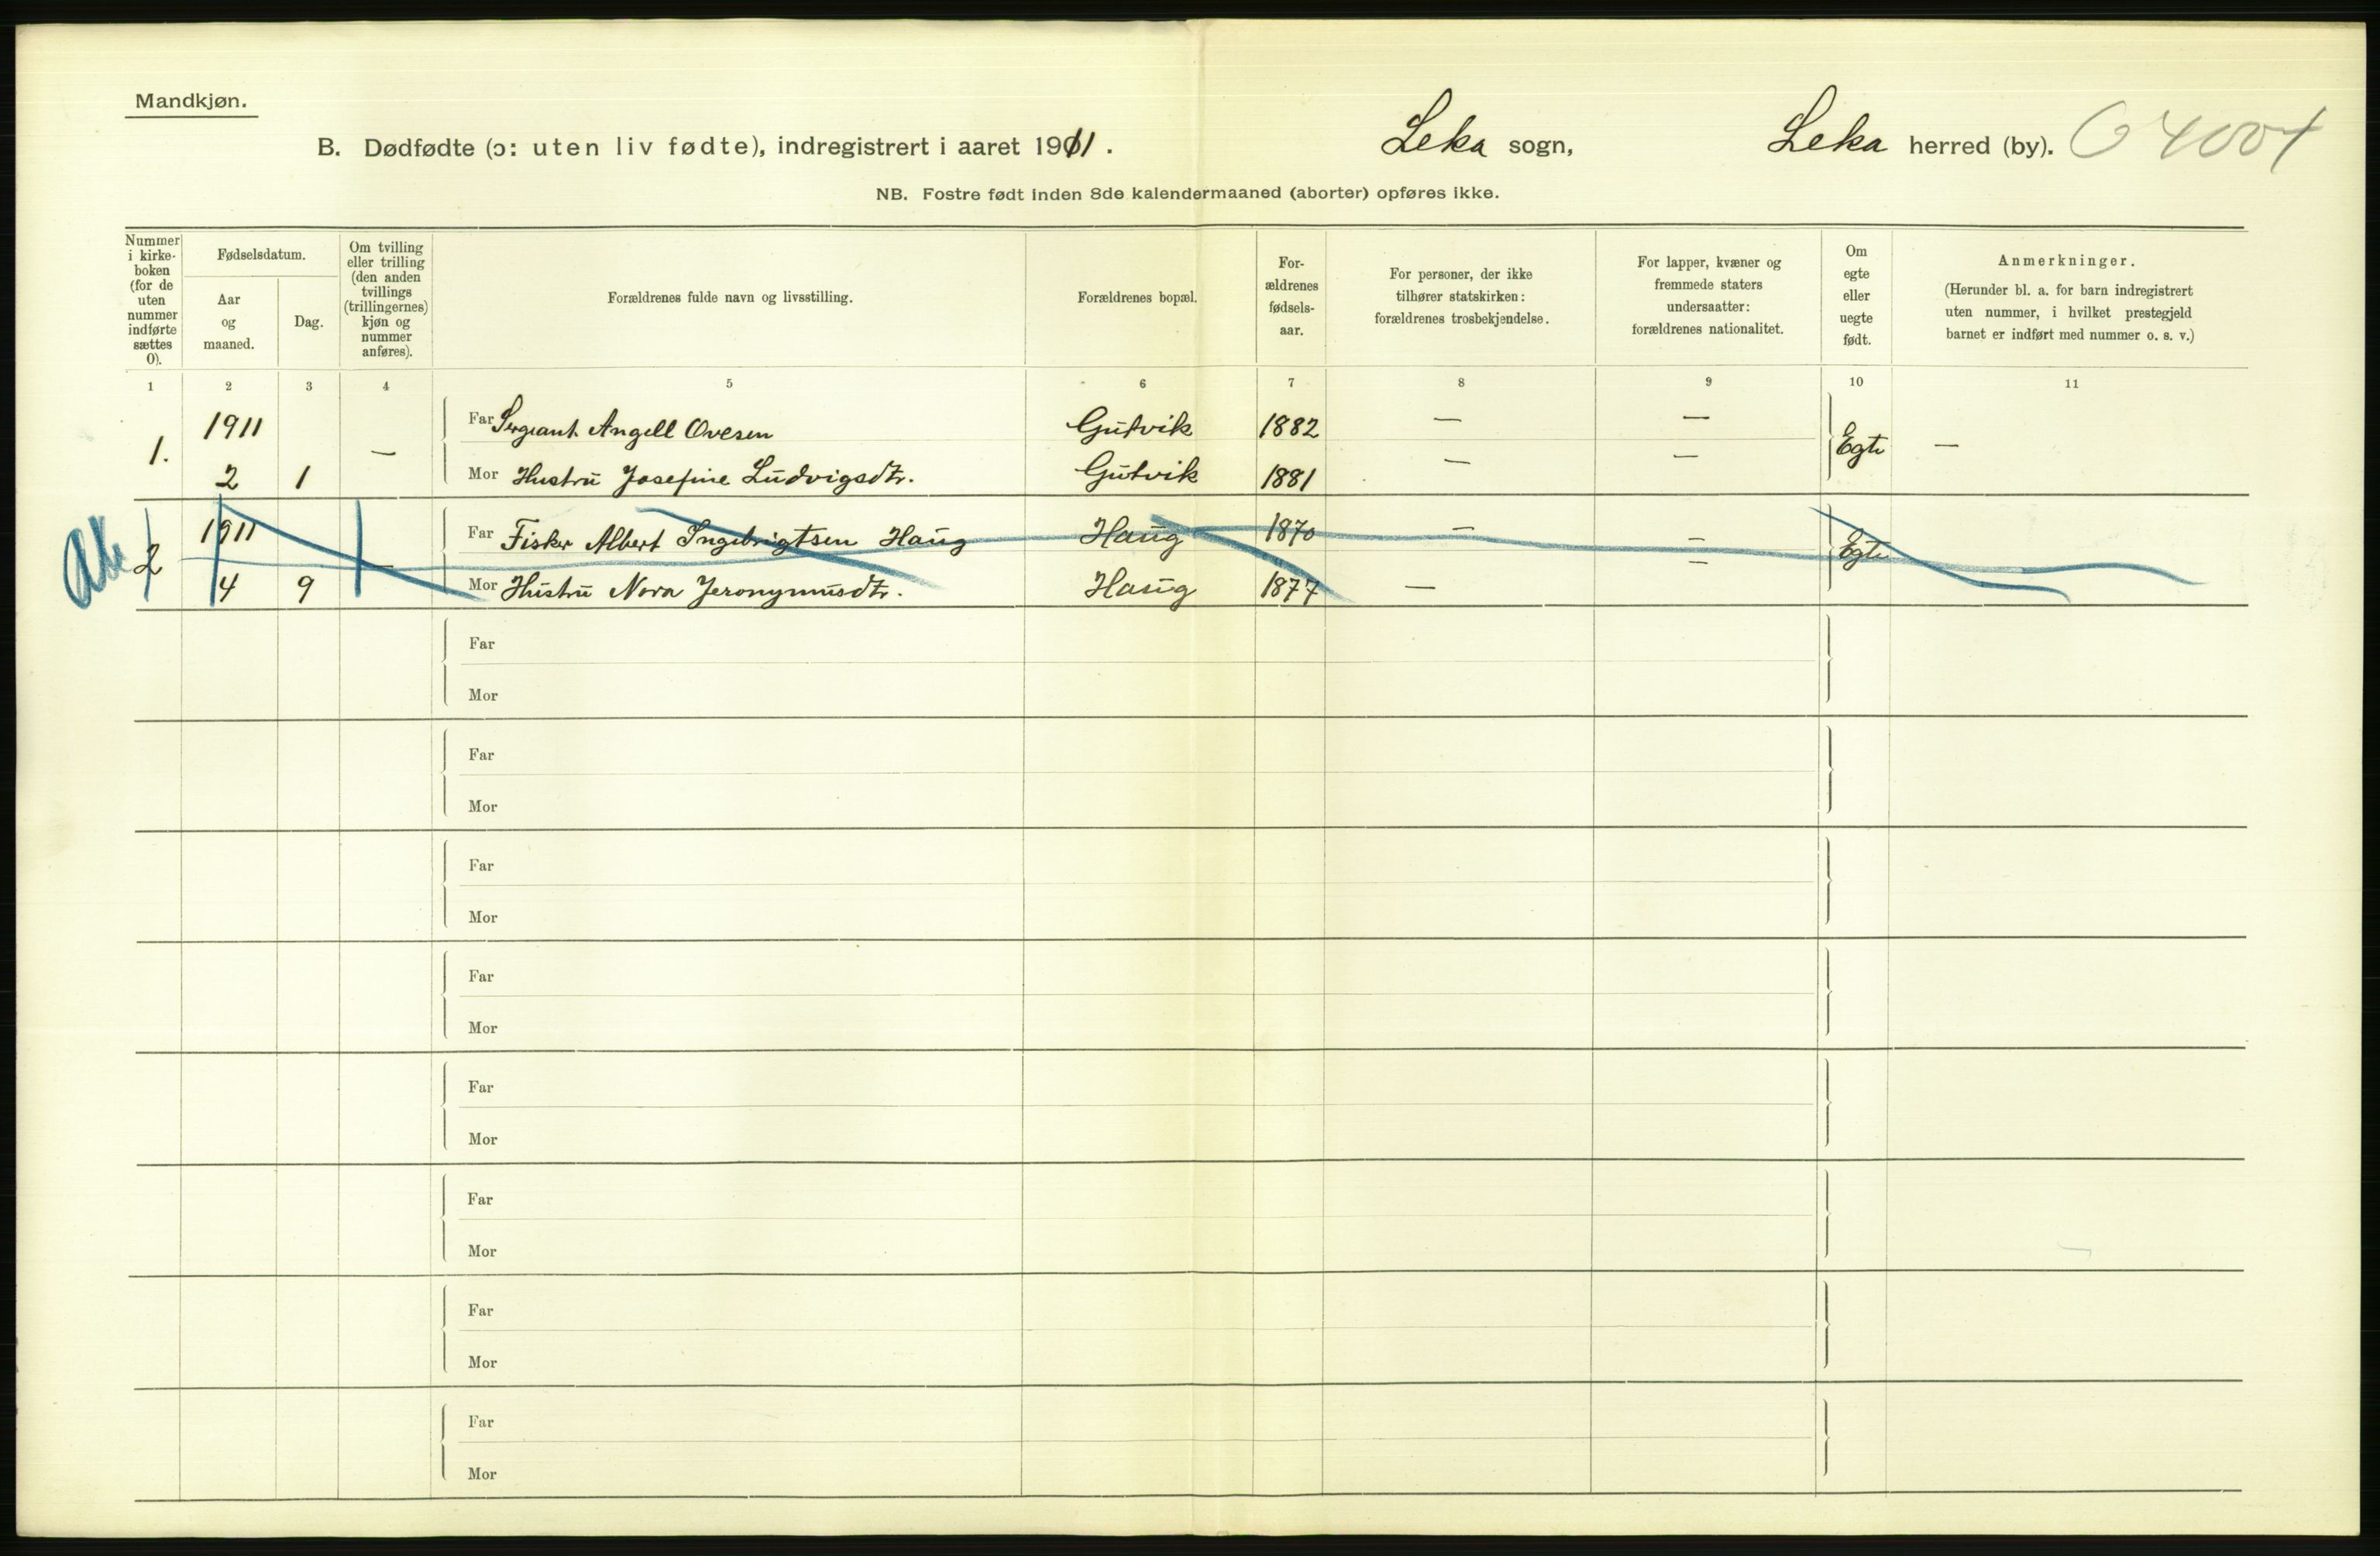 Mandkjøn.
B. Dødfødte (ɔ: uten liv fødte), indregistrert i aaret 1911.
Leka sogn,
Leka herred (by).
NB. Fostre født inden 8de kalendermaaned (aborter) opføres ikke.
Nummer i kirke-
boken
(for de
uten
nummer
indførte
sættes
0).
Fødselsdatum.
Aar
og
maaned.
Dag.
Om tvilling
eller trilling
(den anden
tvillings
(trillingernes)
kjøn og
nummer
anføres).
Forældrenes fulde navn og livsstilling.
Forældrenes bopæl.
For-
ældrenes
fødsels-
aar.
For personer, der ikke
tilhører statskirken:
forældrenes trosbekjendelse.
For lapper, kvæner og
fremmede staters
undersaatter:
forældrenes nationalitet.
Om
egte
eller
uegte
født.
Anmerkninger.
(Herunder bl. a. for barn indregistrert
uten nummer, i hvilket prestegjeld
barnet er indført med nummer o. s. v.)
1 2 3 4 5 6 7 8 9 10 11
1. 1911 — Far Sergeant Angell Ovesen Gutvik 1882 — — Egte —
2 1 Mor Hustru Josefine Ludvigsdtr. Gutvik 1881 — —
2 1911 — Far Fisker Albert Ingebrigtsen Haug Haug 1870 — — Egte
4 9 Mor Hustru Nora Jeronymusdtr. Haug 1877 — —
Far
Mor
Far
Mor
Far
Mor
Far
Mor
Far
Mor
Far
Mor
Far
Mor
Far
Mor